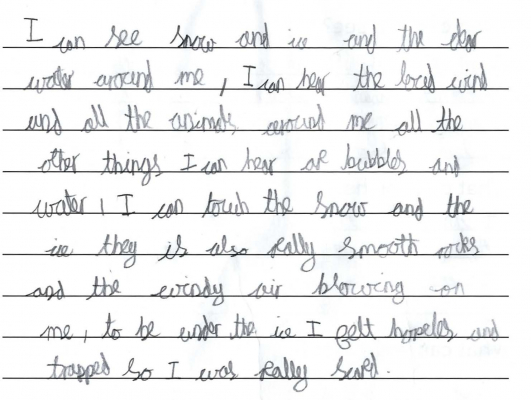 I can see snow and ice and the clear
water around me, I can hear the loud wind
and all the animals around me all the
other things I can hear are bubbles and
water, I can touch the snow and the
ice they is also really smooth rocks
and the windy air blowing on
me, to be under the ice I felt hopeles and
trapped so I was really scard.